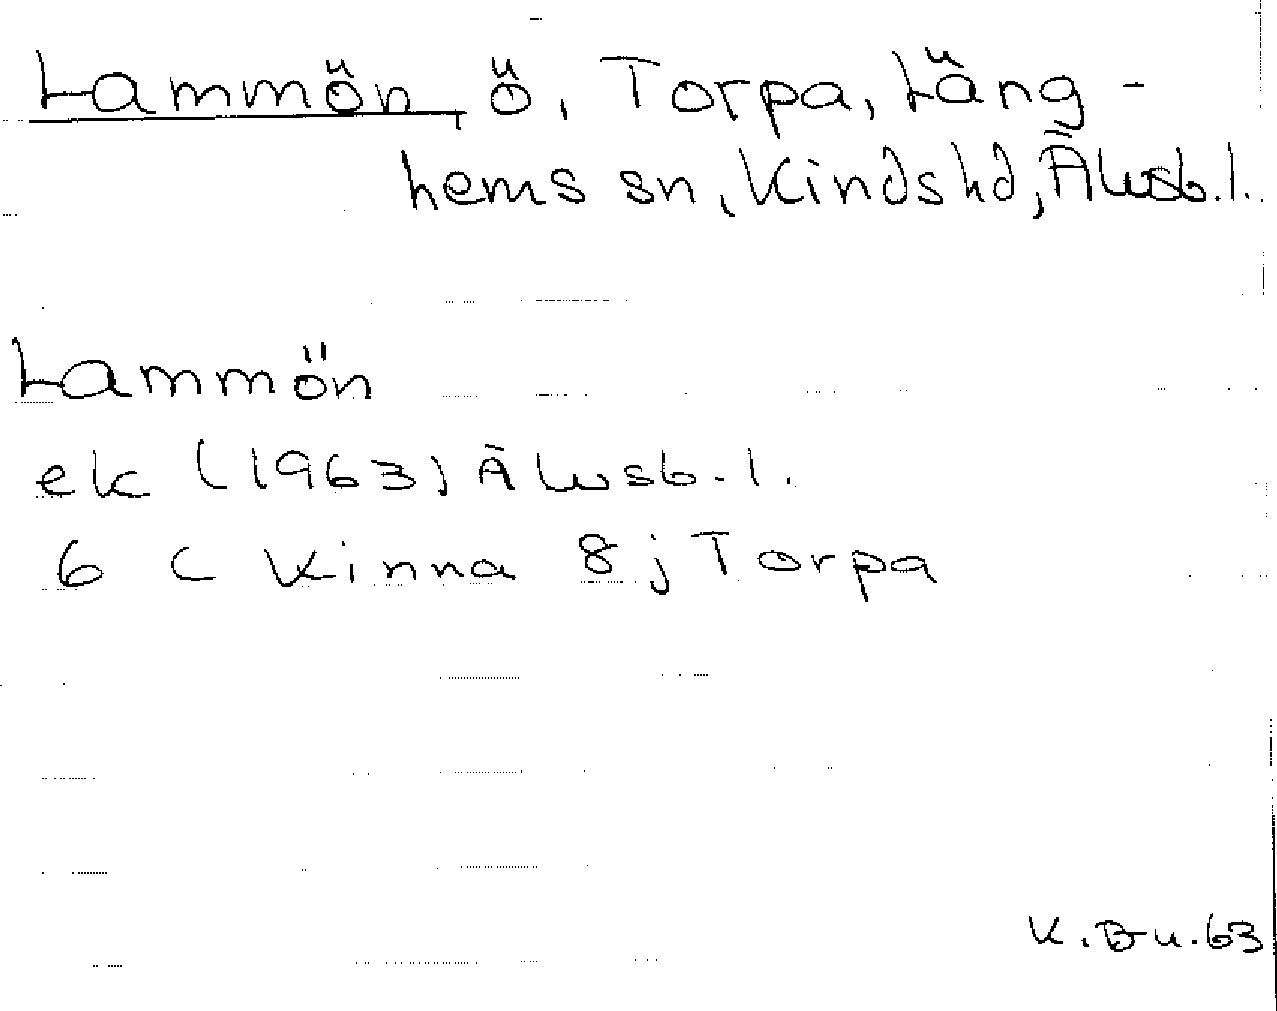 Lammön, ö, Torpa, Läng-
hems sn, Kinds hd, Älvsb. l.
Lammön
ek (1963) Älvsb. l.
6 C Kinna 8 j Torpa
K. Bu. 63